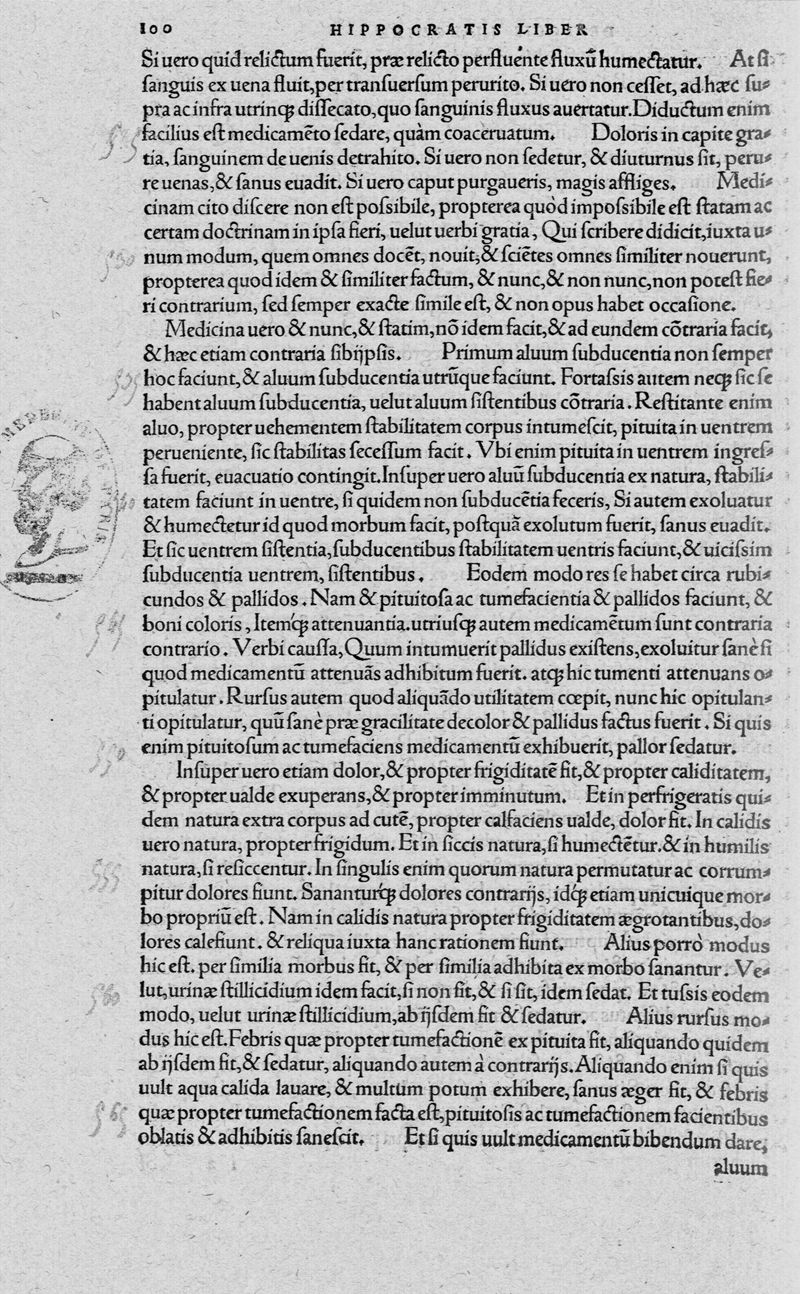 100 HIPPOCRATIS LIBER
Si uero quid relictum fuerit, præ relicto perfluente fluxū humectatur. At si
sanguis ex uena fluit, per transuersum perurito. Si uero non cesset, ad hæc su⸗
pra ac infra utrinq; dissecato, quo sanguinis fluxus auertatur. Diductum enim
facilius est medicamēto sedare, quàm coaceruatum. Doloris in capite gra⸗
tia, sanguinem de uenis detrahito. Si uero non sedetur, & diuturnus sit, peru⸗
re uenas, & sanus euadit. Si uero caput purgaueris, magis affliges. Medi⸗
cinam cito discere non est possibile, propterea quòd impossibile est statam ac
certam doctrinam in ipsa fieri, uelut uerbi gratia, Qui scribere didicit, iuxta u⸗
num modum, quem omnes docēt, nouit, & sciētes omnes similiter nouerunt,
propterea quod idem & similiter factum, & nunc, & non nunc, non potest fie⸗
ri contrarium, sed semper exacte simile est, & non opus habet occasione.
Medicina uero & nunc, & statim, nō idem facit, & ad eundem cōtraria facit,
& hæc etiam contraria sibijpsis. Primum aluum subducentia non semper
hoc faciunt, & aluum subducentia utrūque faciunt. Fortassis autem neq; sic se
habent aluum subducentia, uelut aluum sistentibus cōtraria. Restitante enim
aluo, propter uehementem stabilitatem corpus intumescit, pituita in uentrem
perueniente, sic stabilitas secessum facit. Vbi enim pituita in uentrem ingres⸗
sa fuerit, euacuatio contingit. Insuper uero aluū subducentia ex natura, stabili⸗
tatem faciunt in uentre, si quidem non subducētia feceris, Si autem exoluatur
& humectetur id quod morbum facit, postquā exolutum fuerit, sanus euadit.
Et sic uentrem sistentia, subducentibus stabilitatem uentris faciunt, & uicissim
subducentia uentrem, sistentibus. Eodem modo res se habet circa rubi⸗
cundos & pallidos. Nam & pituitosa ac tumefacientia & pallidos faciunt, &
boni coloris, Itemq́; attenuantia. utriusq; autem medicamētum sunt contraria
contrario. Verbi caussa, Quum intumuerit pallidus existens, exoluitur sanè si
quod medicamentū attenuās adhibitum fuerit. atq; hic tumenti attenuans o⸗
pitulatur. Rursus autem quod aliquādo utilitatem cœpit, nunc hic opitulan⸗
ti opitulatur, quū sanè præ gracilitate decolor & pallidus factus fuerit. Si quis
enim pituitosum ac tumefaciens medicamentū exhibuerit, pallor sedatur.
Insuper uero etiam dolor, & propter frigiditatē fit, & propter caliditatem,
& propter ualde exuperans, & propter imminutum. Et in perfrigeratis qui⸗
dem natura extra corpus ad cutē, propter calfaciens ualde, dolor fit. In calidis
uero natura, propter frigidum. Et in siccis natura, si humectētur. & in humilis
natura, si resiccentur. In singulis enim quorum natura permutatur ac corrum⸗
pitur dolores fiunt. Sananturq́; dolores contrarijs, idq́; etiam unicuique mor⸗
bo propriū est. Nam in calidis natura propter frigiditatem ægrotantibus, do⸗
lores calefiunt. & reliqua iuxta hanc rationem fiunt. Alius porrò modus
hic est. per similia morbus fit, & per similia adhibita ex morbo sanantur. Ve⸗
lut, urinæ stillicidium idem facit, si non fit, & si fit, idem sedat. Et tussis eodem
modo, uelut urinæ stillicidium, ab ijsdem fit & sedatur. Alius rursus mo⸗
dus hic est. Febris quæ propter tumefactionē ex pituita fit, aliquando quidem
ab ijsdem fit, & sedatur, aliquando autem à contrarijs. Aliquando enim si quis
uult aqua calida lauare, & multum potum exhibere, sanus æger fit, & febris
quæ propter tumefactionem facta est, pituitosis ac tumefactionem facientibus
oblatis & adhibitis sanescit. Et si quis uult medicamentū bibendum dare,
aluum